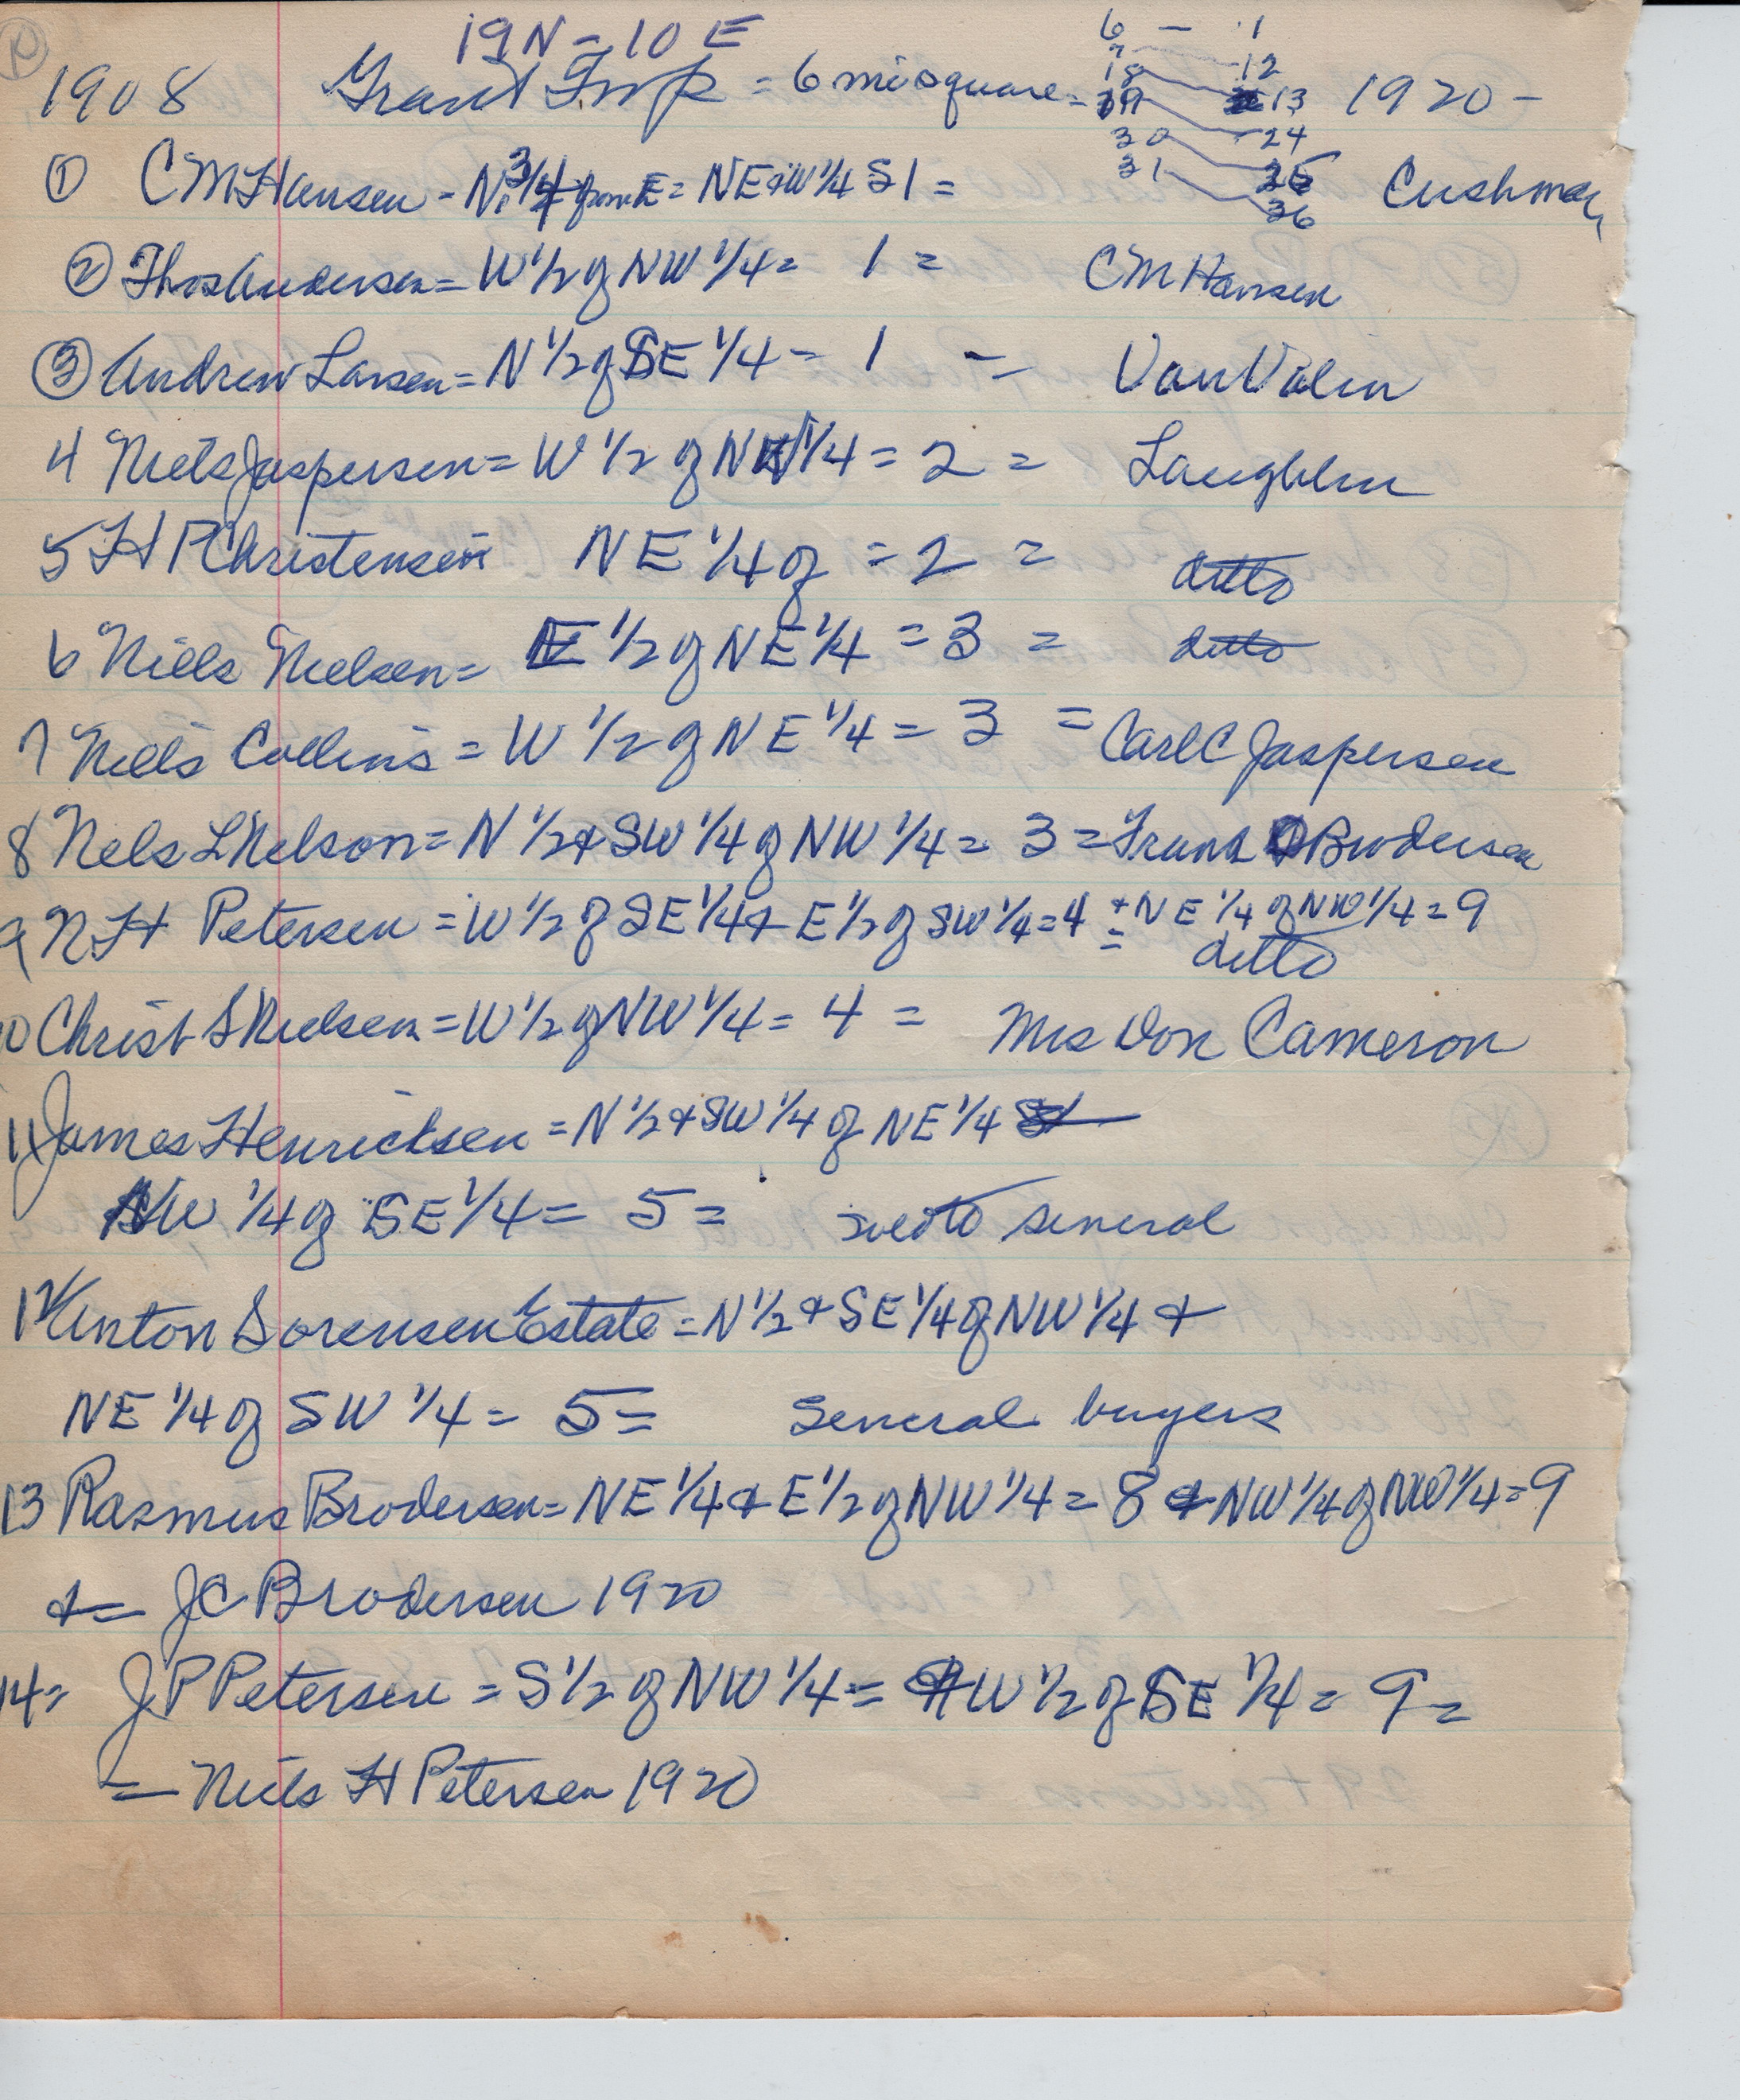 19N - 10 E
1908 Grant Twp = 6 mi square = 1920 -
6 - 1
7 12
18 13
19 24
30 25
31 36
① C M Hansen - N 3/4 from E = NE & W 1/4 S 1 = Cushman
② Thos Andersen = W 1/2 of NW 1/4 = 1 = C M Hansen
③ Andrew Larsen = N 1/2 of SE 1/4 = 1 = Van Valin
4 Niels Jaspersen = W 1/2 of NW 1/4 = 2 = Laughlin
5 H P Christensen NE 1/4 of = 2 = ditto
6 Niels Nielsen = E 1/2 of NE 1/4 = 3 = ditto
7 Niels Collins = W 1/2 of NE 1/4 = 3 = Carl C Jaspersen
8 Nels L Nelson = N 1/2 & SW 1/4 of NW 1/4 = 3 = Frank Brodersen
9 N H Petersen = W 1/2 of SE 1/4 & E 1/2 of SW 1/4 = 4 + NE 1/4 of NW 1/4 = 9
= ditto
10 Christ S Nielsen = W 1/2 of NW 1/4 = 4 = Mrs Don Cameron
11 James Henricksen = N 1/2 & SW 1/4 of NE 1/4
NW 1/4 of SE 1/4 = 5 = sold to several
12 Anton Sorensen Estate = N 1/2 & SE 1/4 of NW 1/4 &
NE 1/4 of SW 1/4 = 5 = several buyers
13 Rasmus Brodersen = NE 1/4 & E 1/2 of NW 1/4 = 8 & NW 1/4 of NW 1/4 = 9
& = J C Brodersen 1920
14 = J P Petersen = S 1/2 of NW 1/4 = & W 1/2 of SE 1/4 = 9 =
= Niels H Petersen 1920